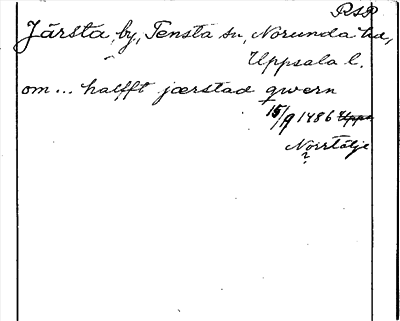 RSP
Järsta, by, Tensta sn, Norunda hd,
Uppsala l.
om... halfft jærstad qwern
15/9 1486 Upps
Norrtälje
?